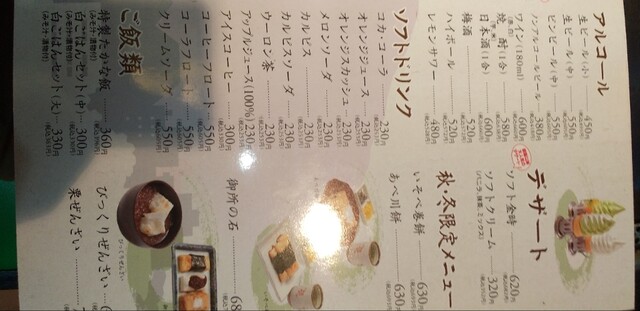 アルコール
生ビール(小) 450円
生ビール(中) 550円
ビンビール(中) 550円
ノンアルコールビール 380円
ワイン(180ml) 600円
焼酎(1合) 580円
日本酒(1合) 600円
梅酒 520円
ハイボール 520円
レモンサワー 480円
ソフトドリンク
コカ・コーラ 230円
オレンジジュース
オレンジスカッシュ
メロンソーダ
カルピス 230円
カルピスソーダ 230円
ウーロン茶 230円
アップルジュース(100%) 230円
アイスコーヒー 300円
コーヒーフロート 550円
コーラフロート 550円
クリームソーダ 550円
ご飯類
特製たかな飯 360円
(みそ汁・漬物付)
白ごはんセット(中) 300円
(みそ汁・漬物付)
白ごはんセット(大) 330円
(みそ汁・漬物付)
デザート
ソフト金時 620円
ソフトクリーム 320円
(バニラ、抹茶、ミックス)
秋・冬限定メニュー
いそべ巻餅 630円
あべ川餅 630円
御所の石
びっくりぜんざい
びっくりぜんざい
栗ぜんざい